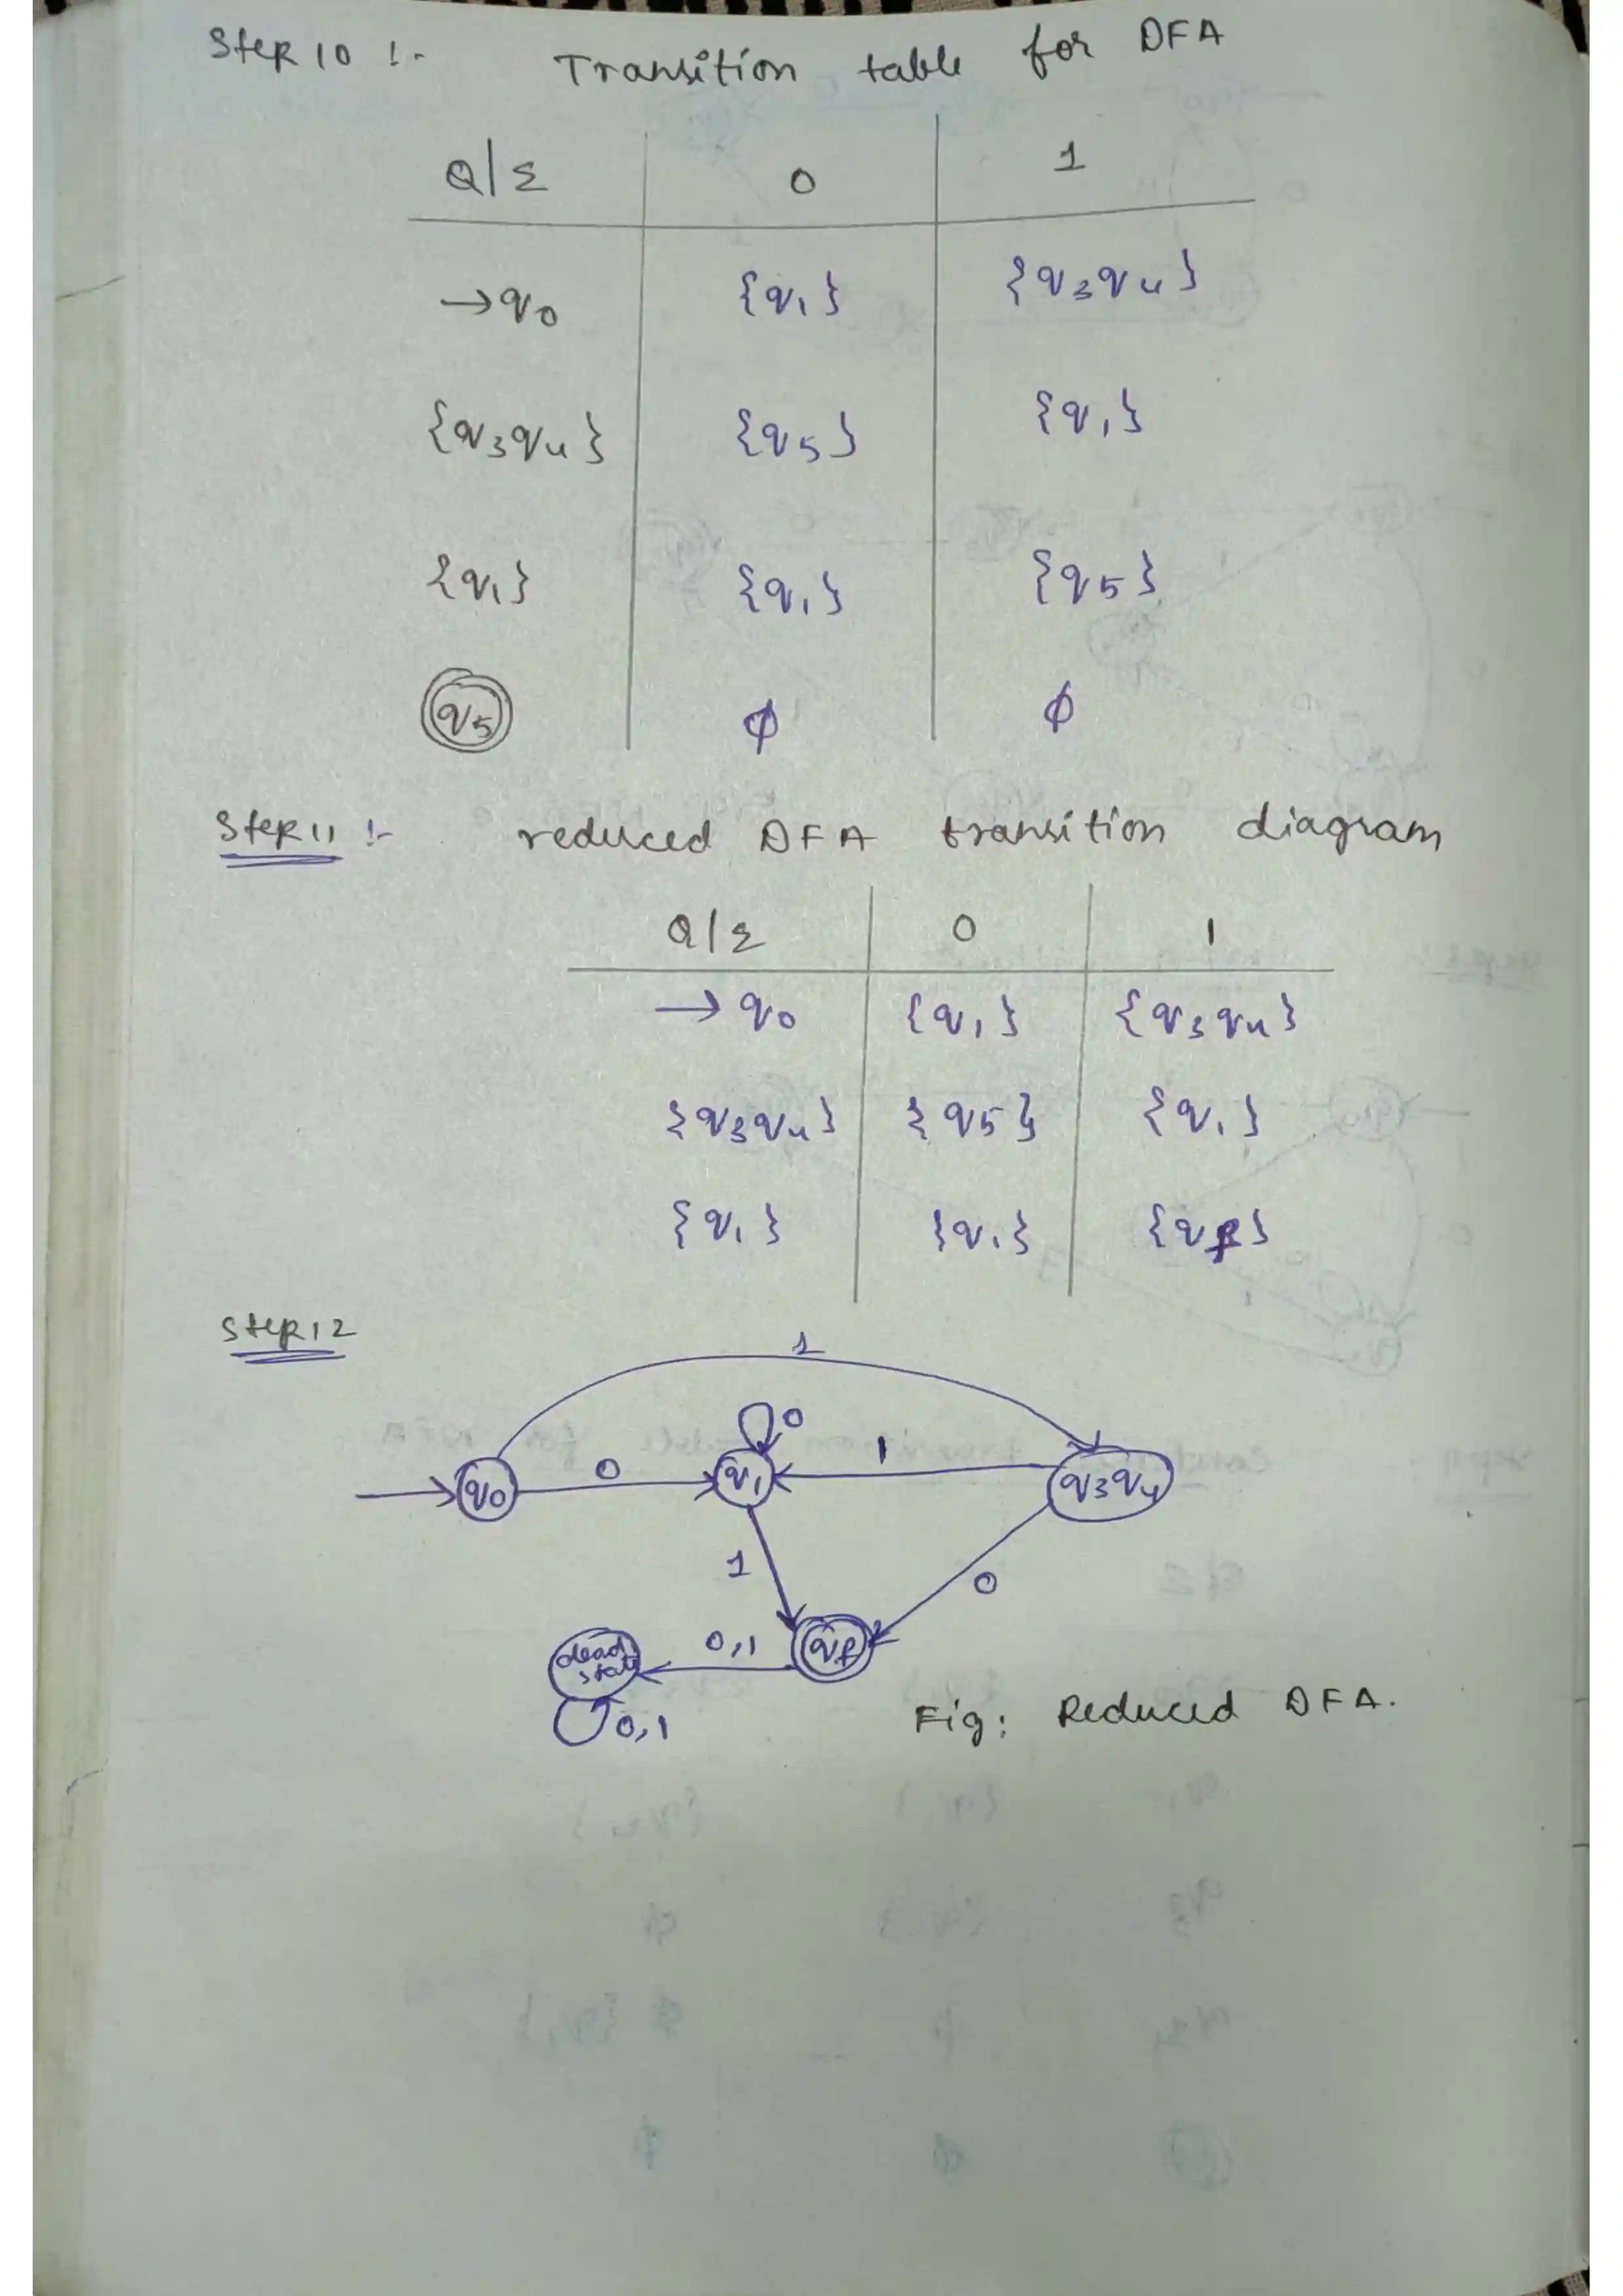 Step 10 :- Transition table for DFA
Q/Σ 0 1
→q0 {q1} {q3q4}
{q3q4} {q5} {q1}
{q1} {q1} {q5}
q5 ϕ ϕ
Step 11 :- reduced DFA transition diagram
Q/Σ 0 1
→ q0 {q1} {q3q4}
{q3q4} {q5} {q1}
{q1} {q1} {qf}
Step 12
1
0
q0 0 q1 1 q3q4
1 0
dead state 0,1 qf
0,1
Fig: Reduced DFA.